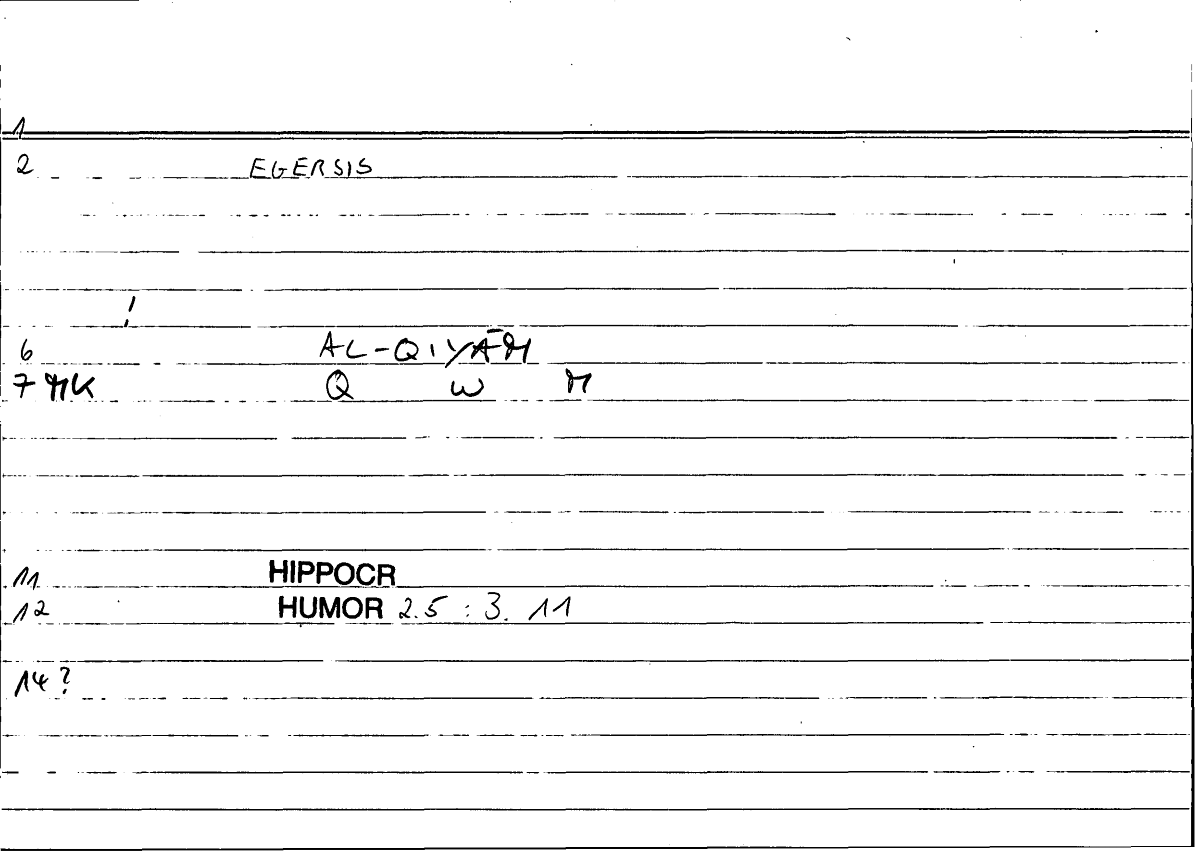 1
2 EGERSIS
!
6 AL-QIYĀM
7 MK Q W M
11 HIPPOCR
12 HUMOR 2.5 : 3. 11
14 ?